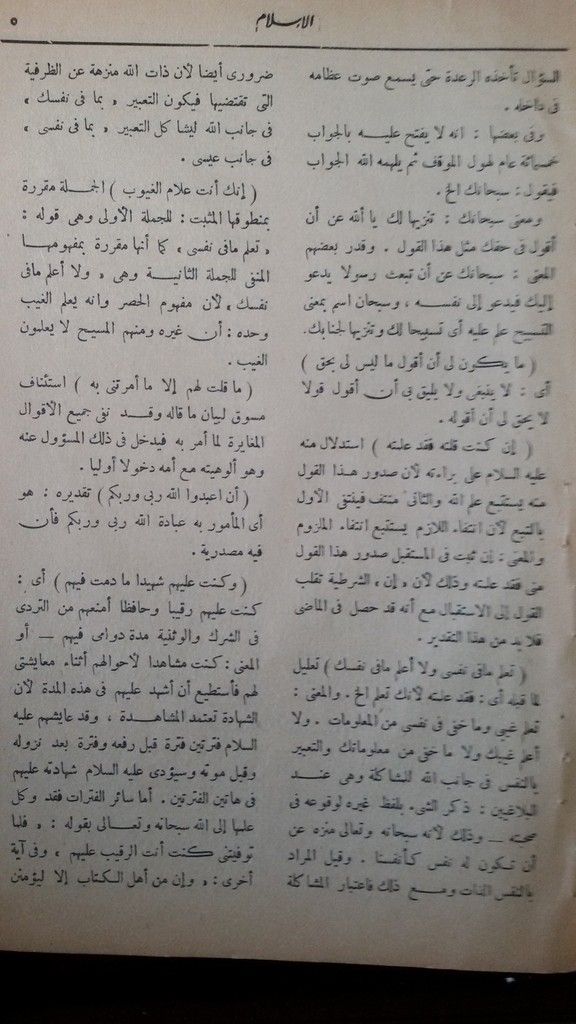 الإسلام
٥
السؤال تأخذه الرعدة حتى يسمع صوت عظامه
فى داخله .
وفى بعضها : انه لا يفتح عليه بالجواب
خمسمائة عام لهول الموقف ثم يلهمه الله الجواب
فيقول : سبحانك الخ .
ومعنى سبحانك : تنزيها لك يا ألله عن أن
أقول فى حقك مثل هذا القول . وقدر بعضهم
المعنى : سبحانك عن أن تبعث رسولا يدعو
إليك فيدعو إلى نفسه ، وسبحان اسم بمعنى
التسبيح علم عليه أى تسبيحا لك وتنزيها لجنابك .
( ما يكون لى أن أقول ما ليس لى بحق )
أى : لا ينبغى ولا يليق بى أن أقول قولا
لا يحق لى أن أقوله .
( إن كنت قلته فقد علمته ) استدلال منه
عليه السلام على براءته لأن صدور هذا القول
منه يستتبع علم الله والثانى منتف فينتفى الأول
بالتبع لأن انتفاء اللازم يستتبع انتفاء الملزوم
والمعنى : إن ثبت فى المستقبل صدور هذا القول
منى فقد علمته وذلك لأن « إن » الشرطية تقلب
القول إلى الاستقبال مع أنه قد حصل فى الماضى
فلابد من هذا التقدير .
( تعلم مافى نفسى ولا أعلم مافى نفسك ) تعليل
لما قبله أى : فقد علمته لأنك تعلم الخ . والمعنى :
تعلم غيبى وما خفى فى نفسى من المعلومات . ولا
أعلم غيبك ولا ما خفى من معلوماتك والتعبير
بالنفس فى جانب الله للمشاكلة وهى عند
البلاغيين : ذكر الشىء بلفظ غيره لوقوعه فى
صحبته — وذلك لأنه سبحانه وتعالى منزه عن
أن تكون له نفس كأنفسنا . وقيل المراد
بالنفس الذات ومع ذلك فاعتبار المشاكلة
ضرورى أيضا لأن ذات الله منزهة عن الظرفية
التى تقتضيها فيكون التعبير « بما فى نفسك »
فى جانب الله ليشاكل التعبير « بما فى نفسى »
فى جانب عيسى .
( إنك أنت علام الغيوب ) الجملة مقررة
بمنطوقها المثبت : للجملة الأولى وهى قوله :
« تعلم مافى نفسى » كما أنها مقررة بمفهومها
المنفى للجملة الثانية وهى « ولا أعلم مافى
نفسك » لأن مفهوم الحصر وانه يعلم الغيب
وحده : أن غيره ومنهم المسيح لا يعلمون
الغيب .
( ما قلت لهم إلا ما أمرتنى به ) استئناف
مسوق لبيان ما قاله وقد نفى جميع الأقوال
المغايرة لما أمر به فيدخل فى ذلك المسؤول عنه
وهو ألوهيته مع أمه دخولا أوليا .
( أن اعبدوا الله ربى وربكم ) تقديره : هو
أى المأمور به عبادة الله ربى وربكم فأن
فيه مصدرية .
( وكنت عليهم شهيدا ما دمت فيهم ) أى :
كنت عليهم رقيبا وحافظا أمنعهم من التردى
فى الشرك والوثنية مدة دوامى فيهم — أو
المعنى : كنت مشاهدا لأحوالهم أثناء معايشتى
لهم فأستطيع أن أشهد عليهم فى هذه المدة لأن
الشهادة تعتمد المشاهدة ، وقد عايشهم عليه
السلام فترتين فترة قبل رفعه وفترة بعد نزوله
وقبل موته وسيؤدى عليه السلام شهادته عليهم
فى هاتين الفترتين . أما سائر الفترات فقد وكل
علمها إلى الله سبحانه وتعالى بقوله : « فلما
توفيتنى كنت أنت الرقيب عليهم » وفى آية
أخرى : « وإن من أهل الكتاب إلا ليؤمنن